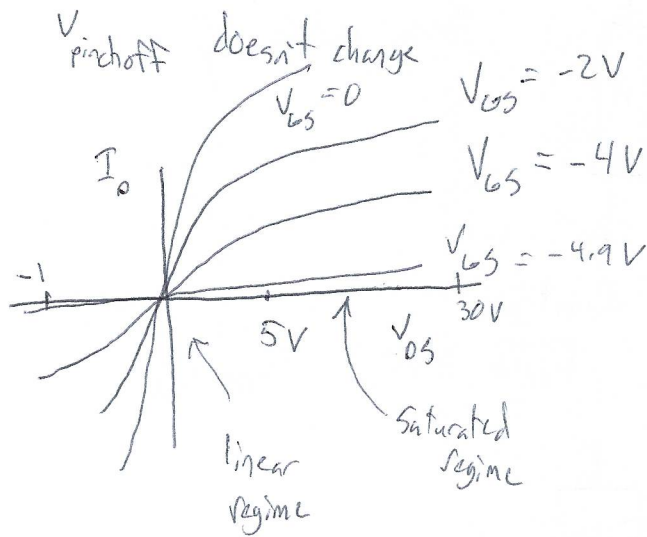 V pinchoff doesn't change
V_GS = 0
V_GS = -2V
I_D
V_GS = -4V
V_GS = -4.9V
-1
5V
V_DS
30V
linear
regime
saturated
regime